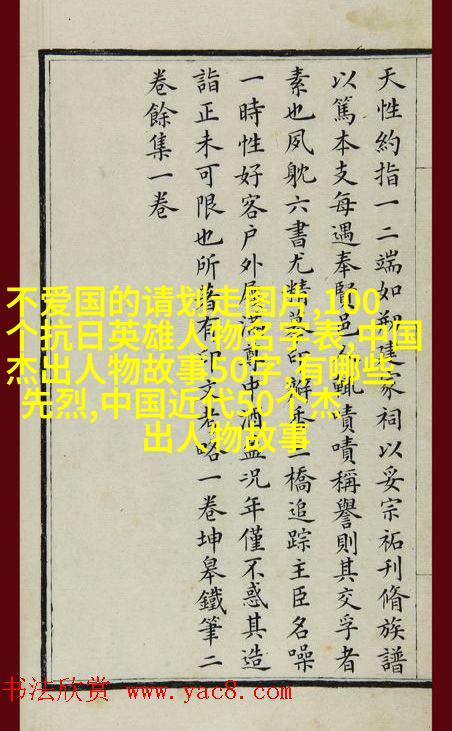 天性約指一二端如建家祠以妥宗祏刊脩族譜
以篤本支每遇奉賢邑輒嘖嘖稱譽則其交孚者
素也夙躭六書尤精篆印二橋追踪主臣名噪
一時性好客户外屨滿尊中酒盈況年僅不惑其造
詣正未可限也所著有印文考略一卷坤皋鐵筆二
卷餘集一卷
不爱国的请划走图片,100
个抗日英雄人物名字表,中国
杰出人物故事50字 有哪些
先烈,中国近代50个杰
出人物故事
书法欣赏 www.yac8.com